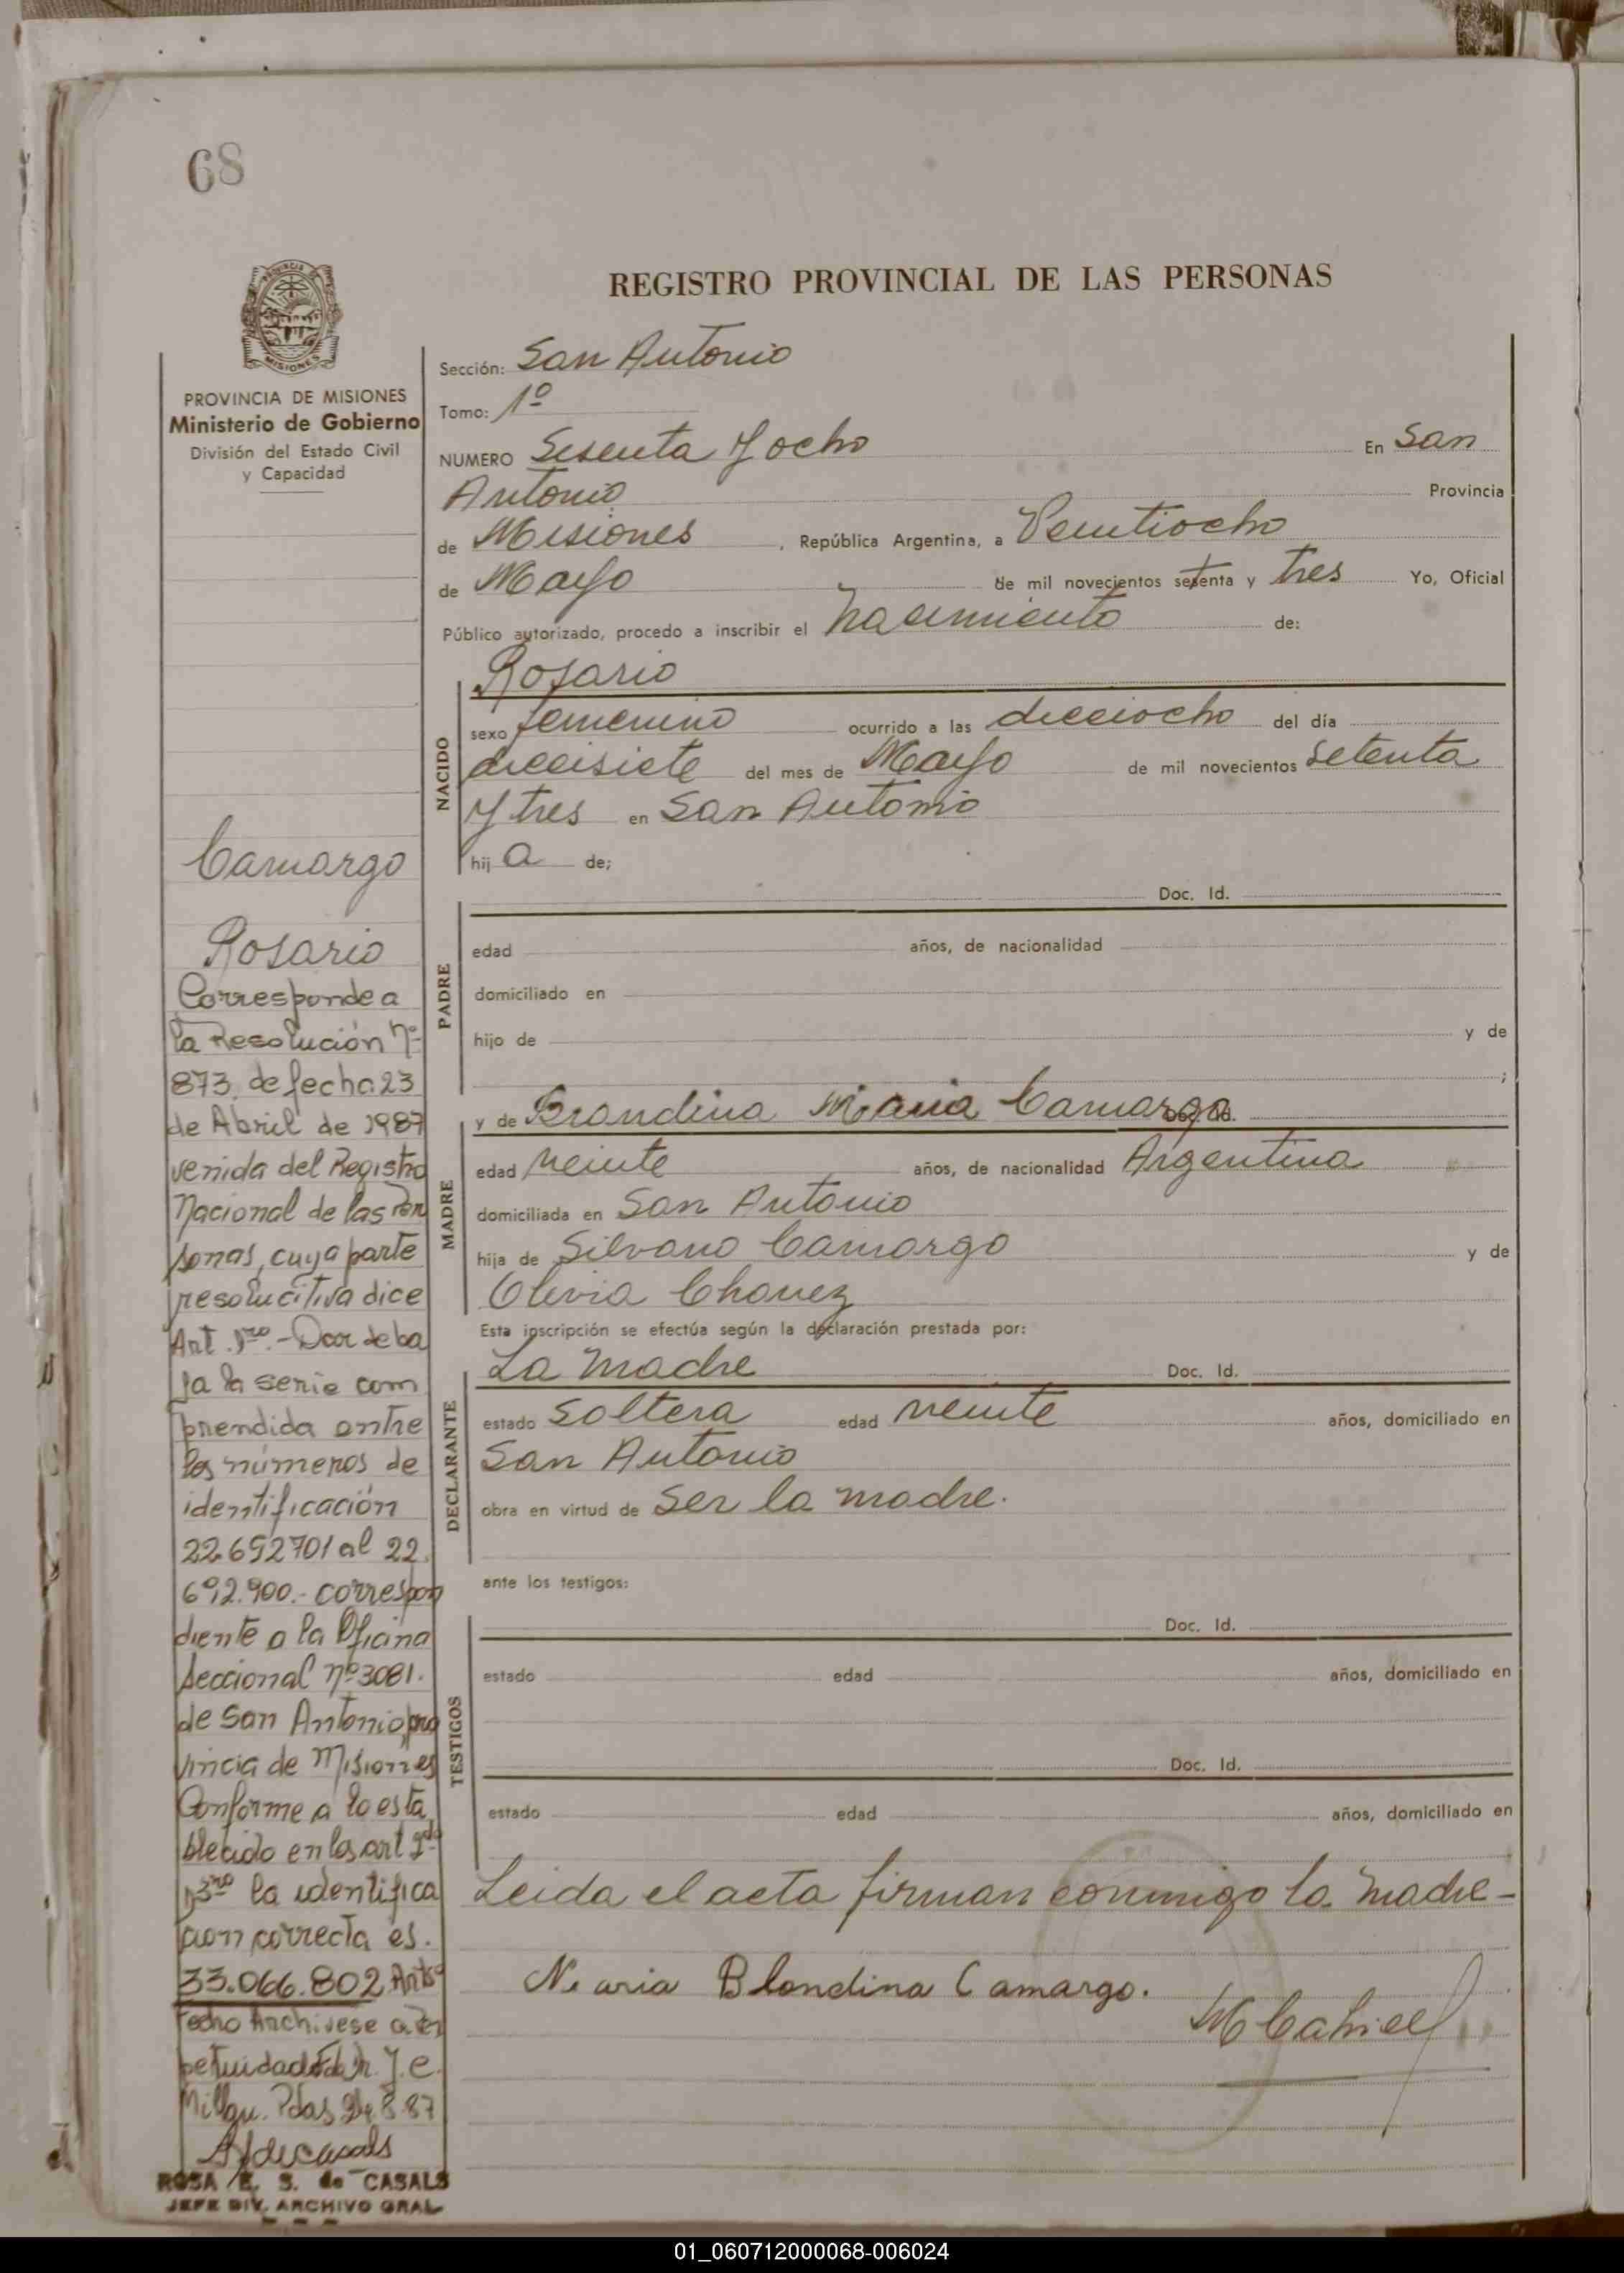 68
PROVINCIA DE MISIONES
Ministerio de Gobierno
División del Estado Civil
y Capacidad
Camargo
Rosario
Corresponde a
la Resolución Nº
873 de fecha 23
de Abril de 1987
venida del Registro
Nacional de las Per
sonas, cuya parte
resolucitiva dice
Art. 1ro.- Dar de ba
ja la serie com
prendida entre
los números de
identificación
22.692701 al 22.
692.900.- correspon
diente a la Oficina
Seccional nº 3081.
de San Antonio, pro
vincia de Misiones
Conforme a lo esta
blecido en los art 2do
y 3ro la identifica
cion correcta es.
33.066.802
Archivese a Per
petuidad
87
ROSA E. S. de CASALS
JEFE DIV. ARCHIVO GRAL
REGISTRO PROVINCIAL DE LAS PERSONAS
Sección: San Antonio
Tomo: 1º
NUMERO Sesenta y ocho En San
Antonio Provincia
de Misiones , República Argentina, a Veintiocho
de Mayo de mil novecientos setenta y tres Yo, Oficial
Público autorizado, procedo a inscribir el Nacimiento de:
Rosario
NACIDO
sexo femenino ocurrido a las dieciocho del día
diecisiete del mes de Mayo de mil novecientos setenta
y tres en San Antonio
hij a de;
PADRE
Doc. Id.
edad años, de nacionalidad
domiciliado en
hijo de y de
;
MADRE
y de Brandina Maria Camargo Doc. Id.
edad veinte años, de nacionalidad Argentina
domiciliada en San Antonio
hija de Silvano Camargo y de
Olivia Chavez
Esta inscripción se efectúa según la declaración prestada por:
DECLARANTE
La Madre Doc. Id.
estado soltera edad veinte años, domiciliado en
San Antonio
obra en virtud de ser la madre.
ante los testigos:
TESTIGOS
Doc. Id.
estado edad años, domiciliado en
Doc. Id.
estado edad años, domiciliado en
Leida el acta firman conmigo la madre -
Maria Blondina Camargo.
01_060712000068-006024